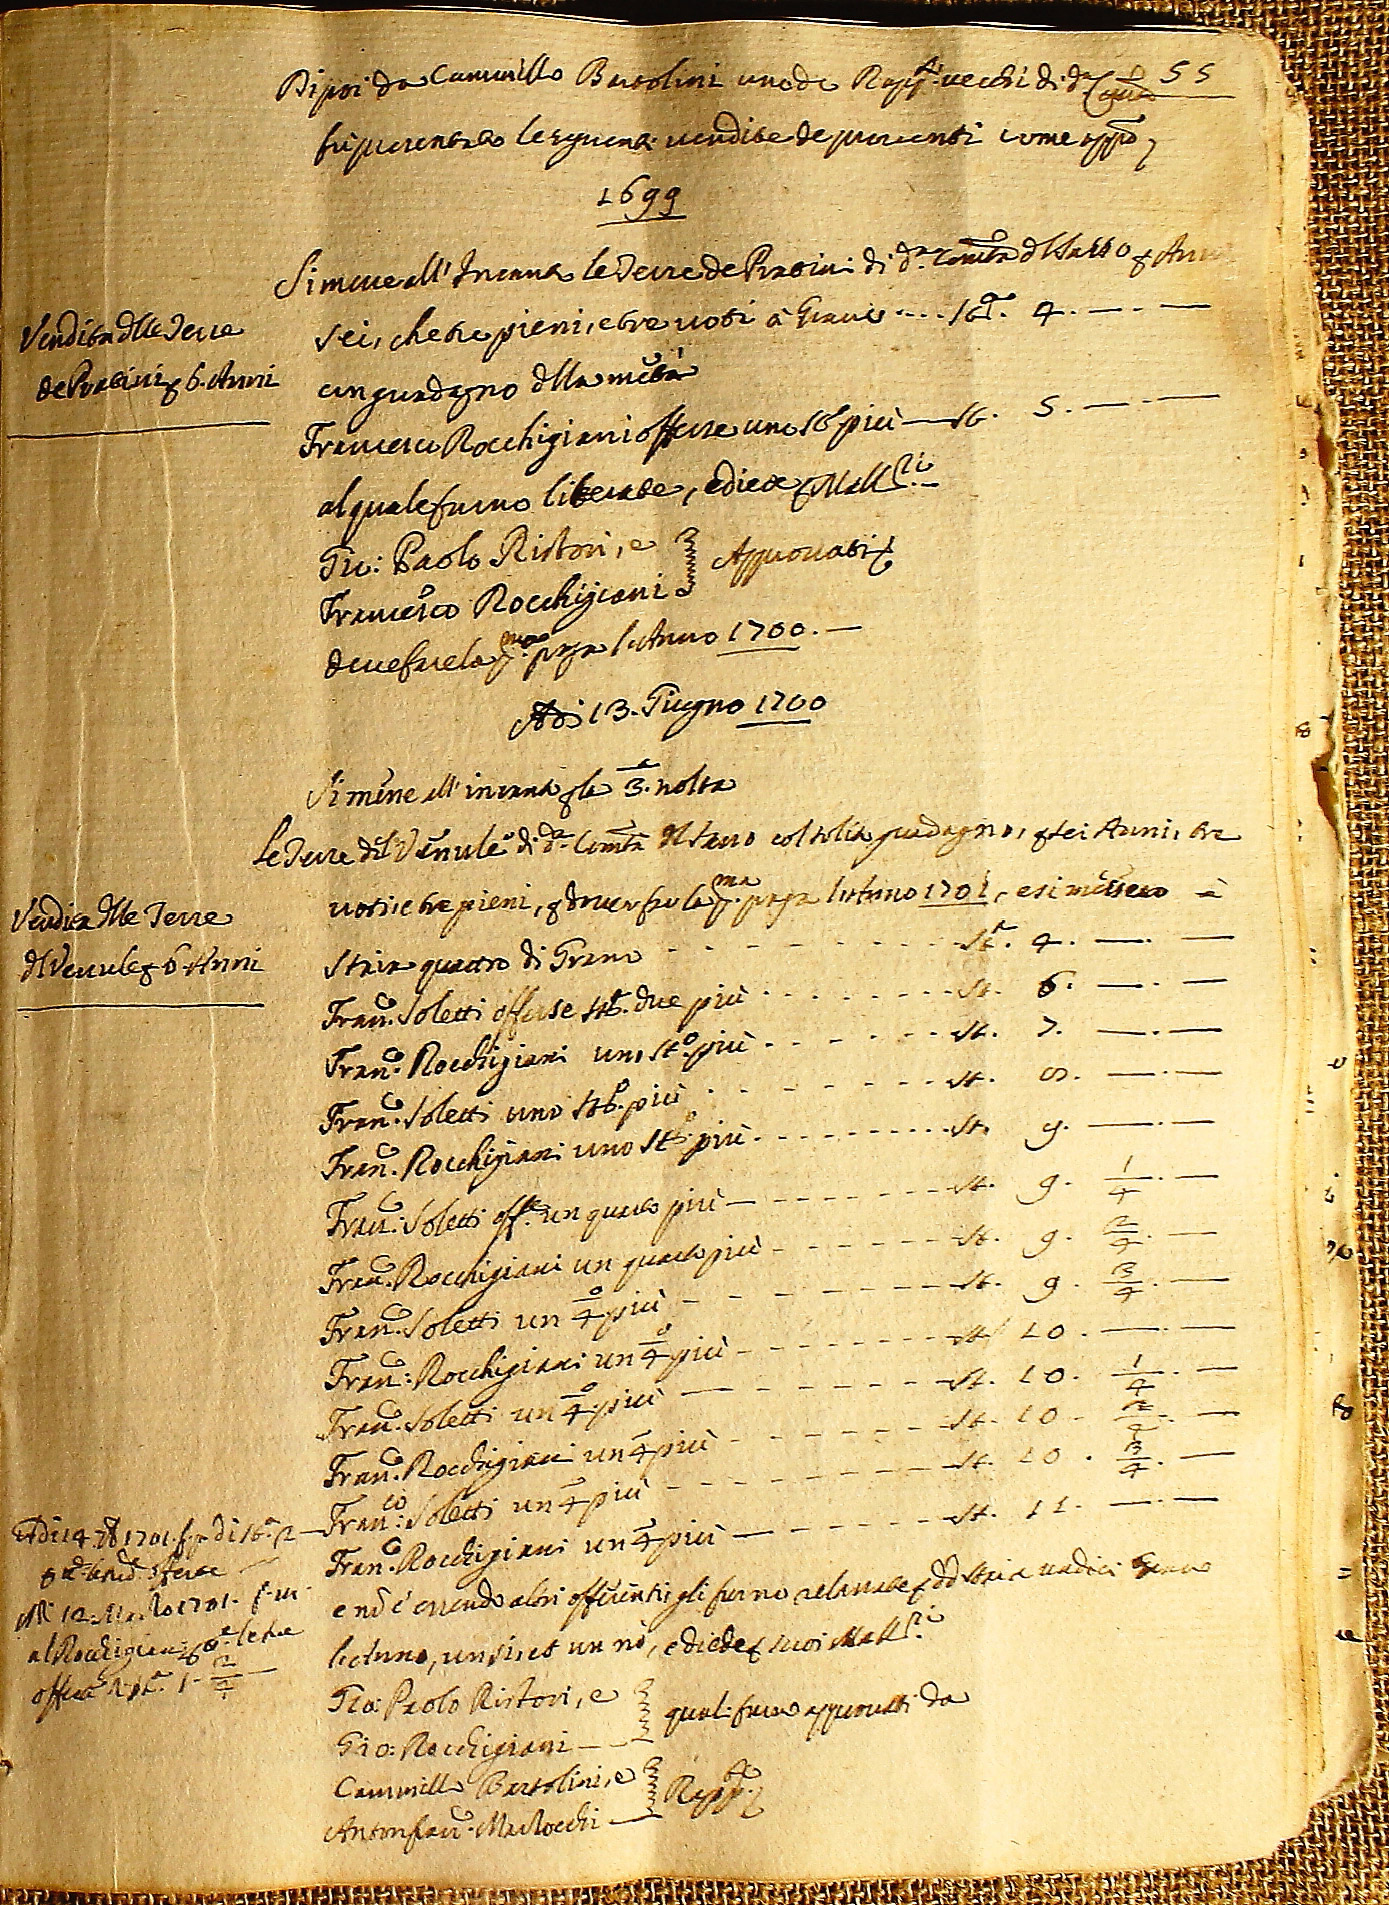 Di poi da Cammillo Bartolini uno de Rapp.ti vecchi di d.a Com.tà 55
fu presentato le seguenti vendite de presenti come app.o
1699
Si messe all' Incanto le Terre de Pratini di d.a Com.tà d'Sasso p Anni
Vendita dlle Terre
de Pratini p 6. Anni
sei, che tre pieni, e tre voti à Grano .... St.a 4. — —
con guadagno dlla metà
Francesco Rocchigiani offerse uno St.o più — St. 5. — —
al quale furno liberate, e diede p Mall.ri
Gio: Paolo Ristori, e
Francesco Rocchigiani } Approvati
deve fare la p.ma paga l'Anno 1700. —
Adi 13. Giugno 1700
Si messe all' incanto p la 3.a volta
Le Terre dl Venule di d.a Com.tà dl Sasso col solito guadagno, p sei Anni, tre
Vendita dlle Terre
dl Venule p 6 Anni
voti e tre pieni, p dover fare la p.ma paga l'Anno 1701, e si messero à
Staia quattro di Grano - - - - St.a 4. — —
Fran.co Soletti offerse St.a due più - - - - St. 6. — —
Fran.co Rocchigiani uno St.o più - - - - St. 7. — —
Fran.co Soletti uno St.o più - - - - St. 8. — —
Fran.co Rocchigiani uno St.o più - - - - St. 9. — —
Fran.co Soletti off.e un quarto più - - - - St. 9. 1/4. —
Fran.co Rocchigiani un quarto più - - - - St. 9. 2/4. —
Fran.co Soletti un 4.o più - - - - St. 9. 3/4. —
Fran.co Rocchigiani un 4.o più - - - - St. 10. — —
Fran.co Soletti un 4.o più - - - - St. 10. 1/4. —
Fran.co Rocchigiani un 4.o più - - - - St. 10. 2/4. —
Fran.co Soletti un 4.o più - - - - St. 10. 3/4. —
Fran.co Rocchigiani un 4.o più - - - - St. 11. — —
Adi 14 1701 di St.a 2
offerse
1701.
al Rocchigiani le tre
offerte St.a 1. 2/4 —
e nō c' essendo altri offerenti gli furno rilasciate p dd Staia undici Grano
l'Anno, un sì, et un nò, e diede p suoi Mall.ri
Gio: Paolo Ristori, e
Gio: Rocchigiani — } quali furno approvati da
Cammillo Bartolini, e
Antonfran.co Marlocchi — } Rapp.ti